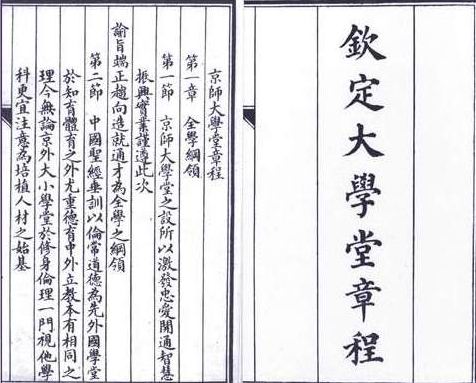 欽定大學堂章程
京師大學堂章程
第一章　全學綱領
第一節　京師大學堂之設所以激發忠愛開通智慧
振興實業謹遵此次
諭旨端正趨向造就通才為全學之綱領
第二節　中國聖經垂訓以倫常道德為先外國學堂
於知育體育之外尤重德育中外立教本有相同之
理今無論京外大小學堂於修身倫理一門視他學
科更宜注意為培植人材之始基